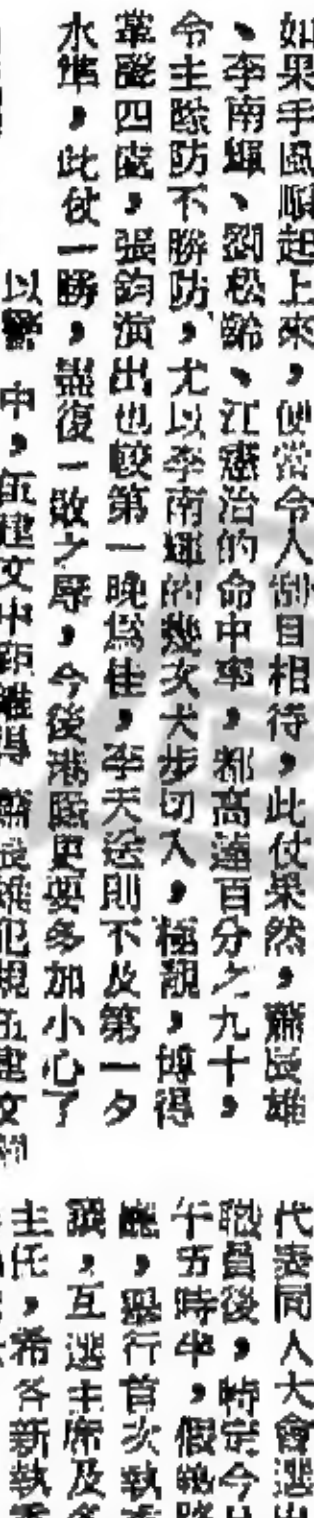 如果手風順起上來,便常令人刮目相待,此仗果然,蕭辰雄
、李南輝、劉松齡、江憲治的命中率,都高達百分之九十,
令主隊防不勝防,尤以李南輝的幾次大步切入,極靚,博得
掌聲四處,張鈞演出也較第一晚爲佳,李天送則不及第一夕
水準,此仗一勝,盡復一敗之辱,今後港隊更要多加小心了
中,伍建文中距離得
犯規伍建文
代表同人大會選出
職員後,特定今
午五時半,假
,舉行首次執
,互選主席及各
主任,希各新執